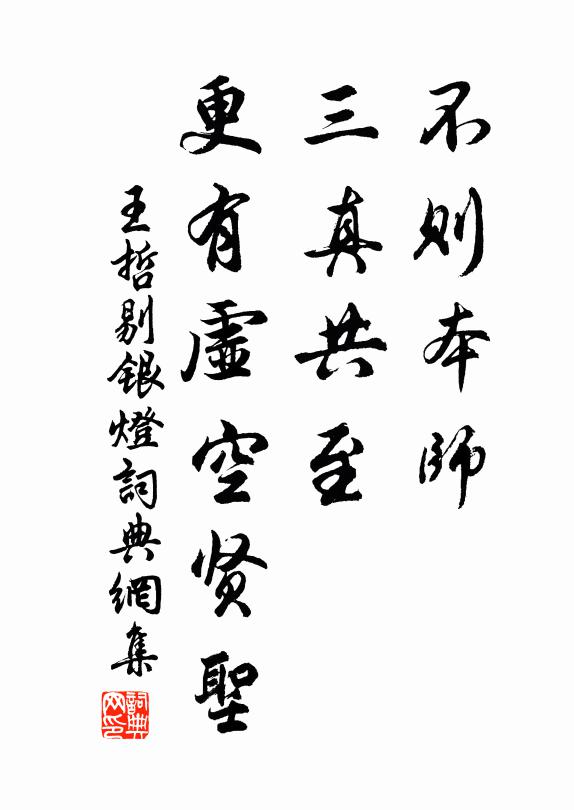 不则本师
三真共至
更有虚空贤聖
王哲剔银燈词典網集
詞典网印